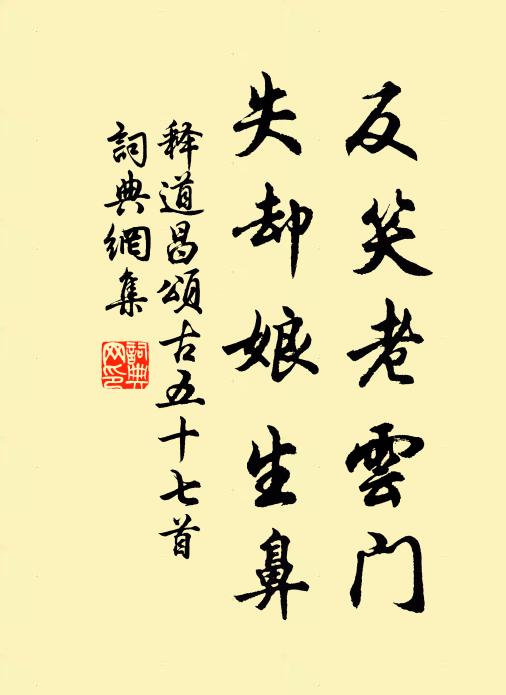 反笑老雲門
失却娘生鼻
释道昌頌古五十七首
詞典網集
詞典
网印